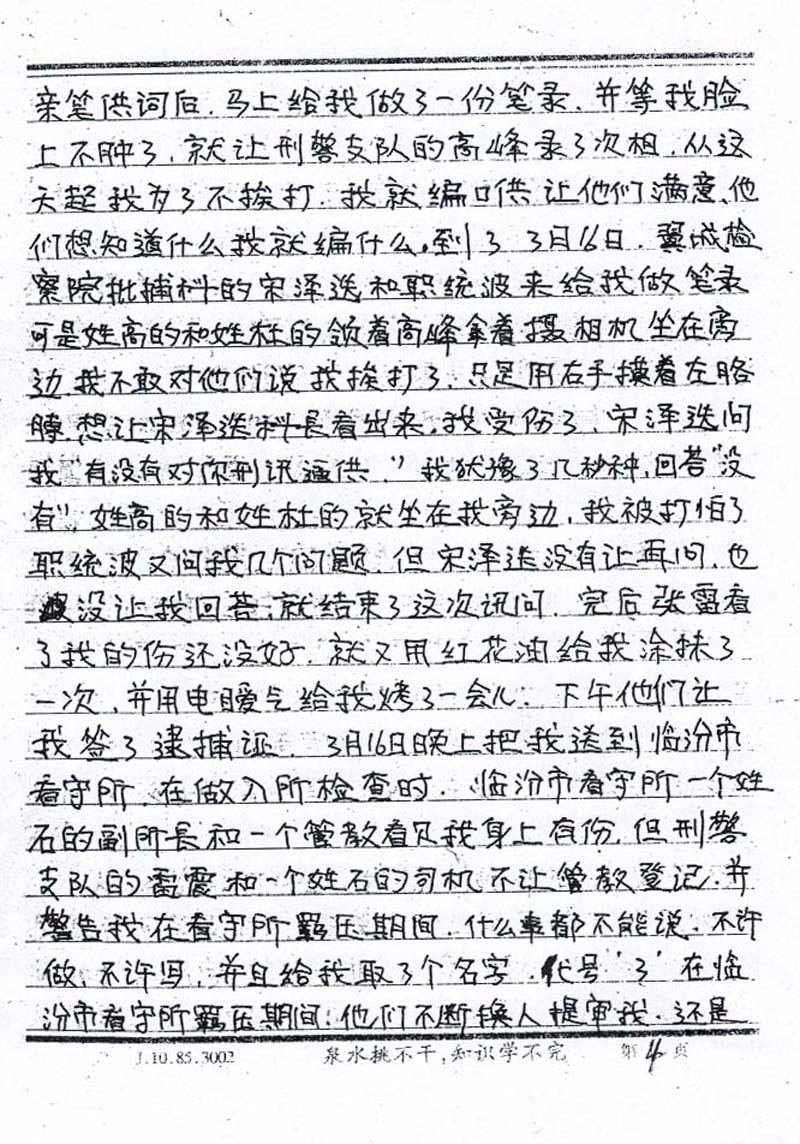 亲笔供词后，马上给我做了一份笔录，并等我脸
上不肿了，就让刑警支队的高峰录了次相，从这
天起我为了不挨打，我就编口供让他们满意、他
们想知道什么我就编什么。到了 3月16日，翼城检
察院批捕科的宋泽迭和职统波来给我做笔录
可是姓高的和姓杜的领着高峰拿着摄相机坐在旁
边，我不敢对他们说我挨打了，只是用右手摸着左胳
膊，想让宋泽迭科长看出来，我受伤了，宋泽迭问
我“有没有对你刑讯逼供，”我犹豫了几秒种，回答“没
有”，姓高的和姓杜的就坐在我旁边，我被打怕了
职统波又问我几个问题，但宋泽迭没有让再问，也
没让我回答，就结束了这次讯问，完后张雷看
了我的份还没好，就又用红花油给我涂抹了
一次，并用电暖气给我烤了一会儿，下午他们让
我签了逮捕证，3月16日晚上把我送到临汾市
看守所，在做入所检查时，临汾市看守所一个姓
石的副所长和一个管教看见我身上有份，但刑警
支队的雷震和一个姓石的司机不让管教登记，并
警告我在看守所羁压期间，什么事都不能说，不许
做，不许写，并且给我取了个名字，代号‘3’在临
汾市看守所羁压期间，他们不断换人提审我，还是
J.10.85.3002 泉水挑不干，知识学不完 第4页